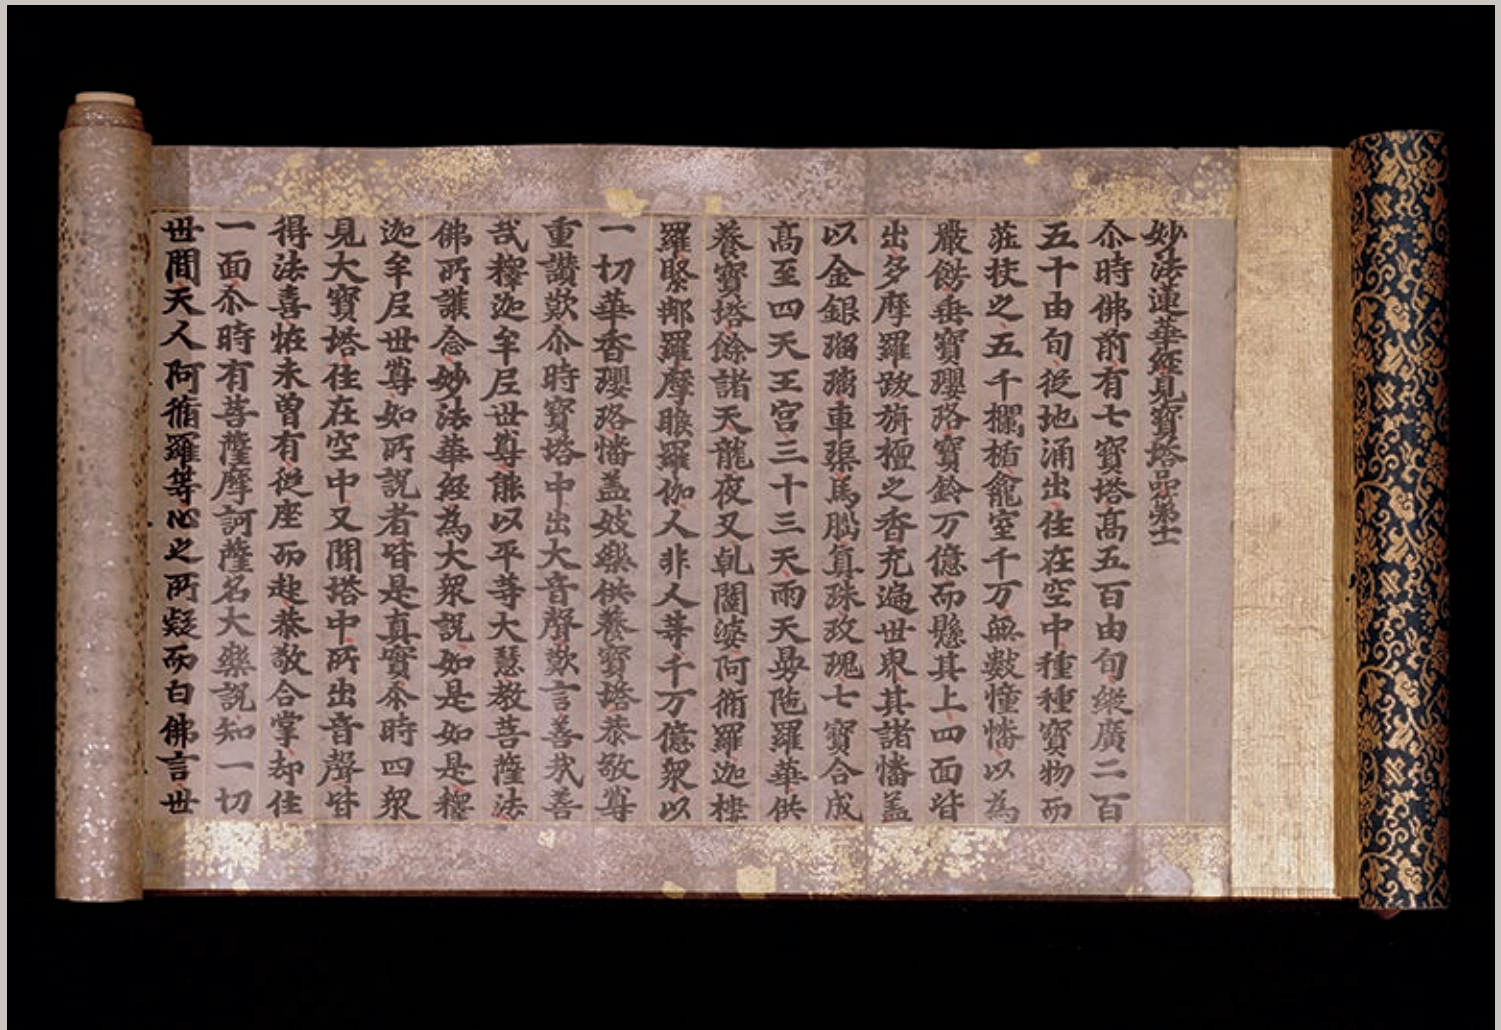 妙法蓮華經見寶塔品第十一
尒時佛前有七寶塔高五百由旬縱廣二百
五十由旬從地涌出住在空中種種寶物而
莊挍之五千欄楯龕室千万無數幢幡以為
嚴餝垂寶瓔珞寶鈴万億而懸其上四面皆
出多摩羅跋旃檀之香充遍世界其諸幡盖
以金銀瑠璃車渠馬腦真珠玫瑰七寶合成
高至四天王宮三十三天雨天曼陁羅華供
養寶塔餘諸天龍夜叉乹闥婆阿脩羅迦樓
羅緊那羅摩睺羅伽人非人等千万億衆以
一切華香瓔珞幡盖妓樂供養寶塔恭敬尊
重讃歎尒時寶塔中出大音聲歎言善哉善
哉釋迦牟尼世尊能以平等大慧教菩薩法
佛所護念妙法華經為大衆說如是如是釋
迦牟尼世尊如所說者皆是真實尒時四衆
見大寶塔住在空中又聞塔中所出音聲皆
得法喜恠未曾有從座而起恭敬合掌却住
一面尒時有菩薩摩訶薩名大樂說知一切
世間天人阿脩羅等心之所疑而白佛言世